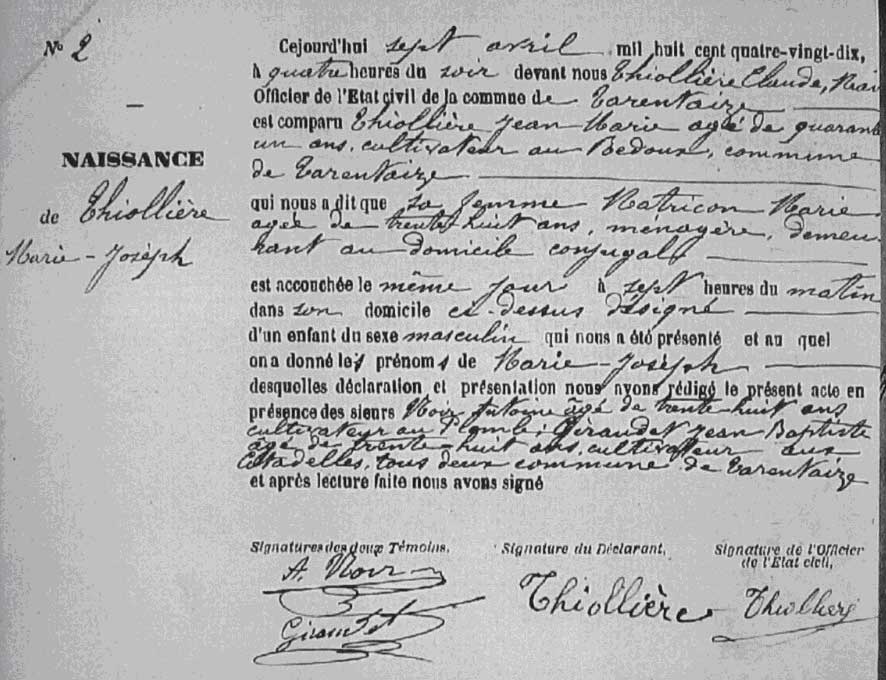 Nº 2
NAISSANCE
de Thiollière
Marie-Joséph
Cejourd'hui sept avril mil huit cent quatre-vingt-dix,
à quatre heures du soir devant nous Thiollière Claude, Mai
Officier de l'Etat civil de la commune de Tarentaize
est comparu Thiollière Jean Marie agé de quarante
un ans, cultivateur au Bedoux, commune
de Tarentaize
qui nous a dit que sa femme Matricon Marie
agée de trente huit ans, ménagère, demeu-
rant au domicile conjugal
est accouchée le même jour à sept heures du matin
dans son domicile ci-dessus désigné
d'un enfant du sexe masculin qui nous a été présenté et au quel
on a donné les prénoms de Marie-Joséph
desquelles déclaration et présentation nous avons rédigé le présent acte en
présence des sieurs Noir Antoine âgé de trente huit ans
cultivateur au Plomb; Giraudet Jean Baptiste
âgé de trente huit ans, cultivateur aux
Citadelles, tous deux commune de Tarentaize
et après lecture faite nous avons signé
Signatures des deux Témoins,
A. Noir
Giraudet
Signature du Déclarant,
Thiollière
Signature de l'Officier
de l'Etat civil,
Thiollière